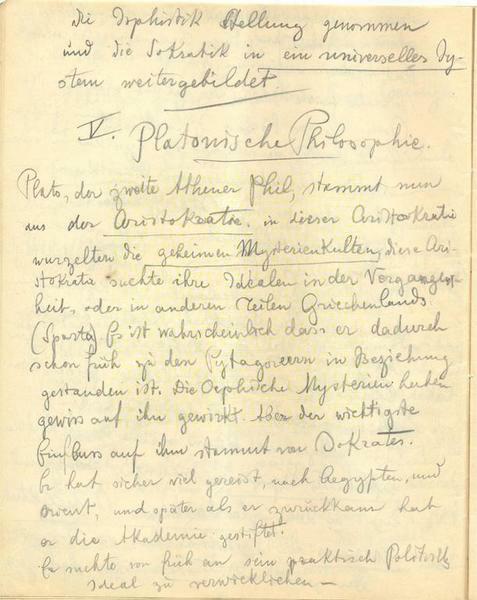 die Sophistik Stellung genommen
und die Sokratik in ein universelles Sy-
stem weitergebildet.
V. Platonische Philosophie.
Plato, der zweite Athener Phil, stammt nun
aus der Aristokratie, in dieser Aristokratie
wurzelten die geheimen Mysterienkulten, diese Ari-
stokratie suchte ihre Idealen in der Vergangen-
heit, oder in anderen Teilen Griechenlands.
(Sparta) Es ist wahrscheinlich dass er dadurch
schon früh zu den Pytagoreern in Beziehung
gestanden ist. Die Orphische Mysterien haben
gewiss auf ihn gewirkt. Aber der wichtigste
Einfluss auf ihm stammt von Sokrates.
Er hat sicher viel gereist, nach Aegypten, und
Orient, und später als er zurückkam hat
er die Akademie gestiftet.
Er suchte von früh an sein praktisch Politisch
Ideal zu verwirklichen —